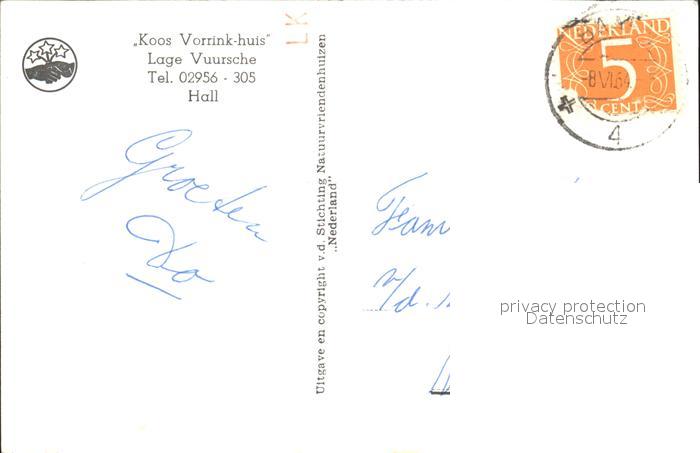 „Koos Vorrink-huis"
Lage Vuursche
Tel. 02956 - 305
Hall
LK
Groeten
Do
Uitgave en copyright v.d. Stichting Natuurvriendenhuizen
„Nederland"
NEDERLAND
5
CENT
-8.VI.64
4
Fam
v/d.
privacy protection
Datenschutz